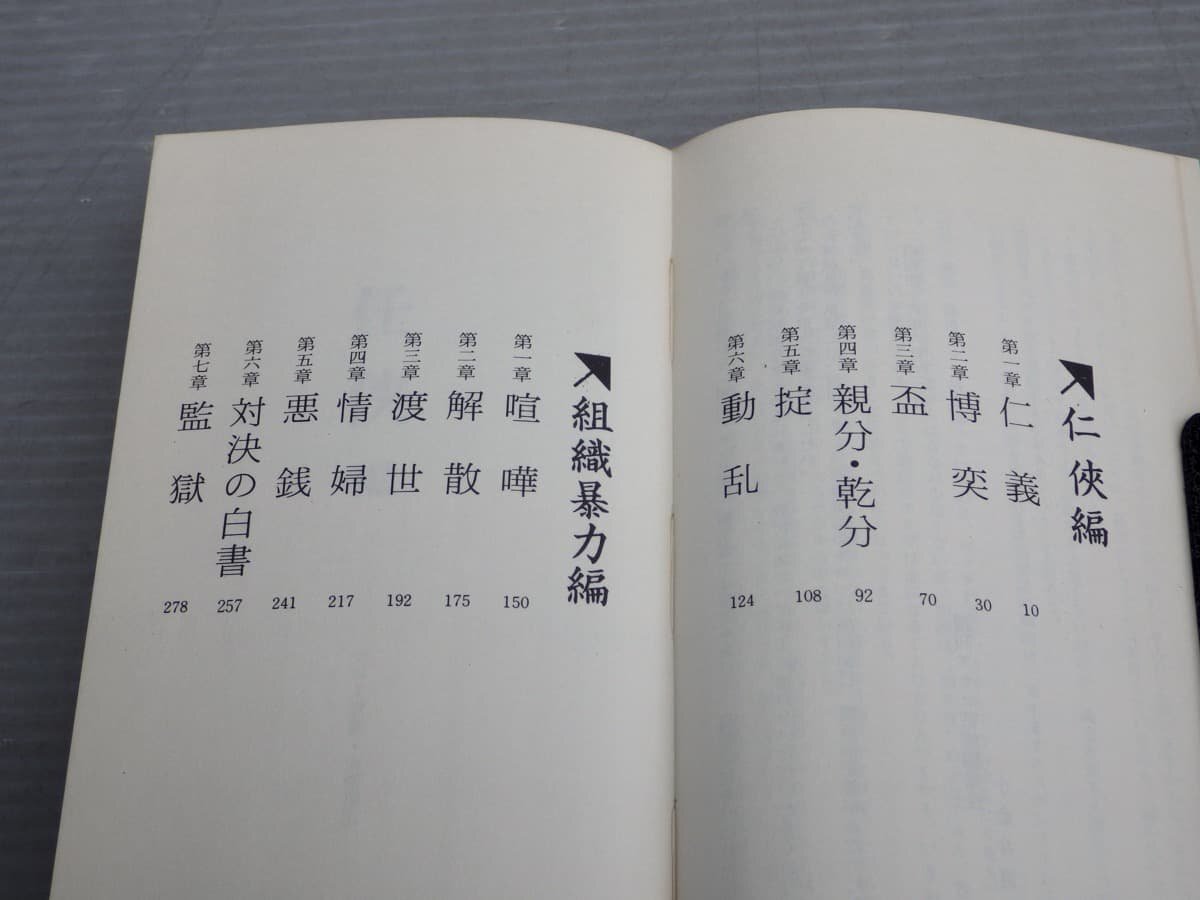 仁侠編
第一章 仁義 10
第二章 博奕 30
第三章 盃 70
第四章 親分・乾分 92
第五章 掟 108
第六章 動乱 124
組織暴力編
第一章 喧嘩 150
第二章 解散 175
第三章 渡世 192
第四章 情婦 217
第五章 悪銭 241
第六章 対決の白書 257
第七章 監獄 278